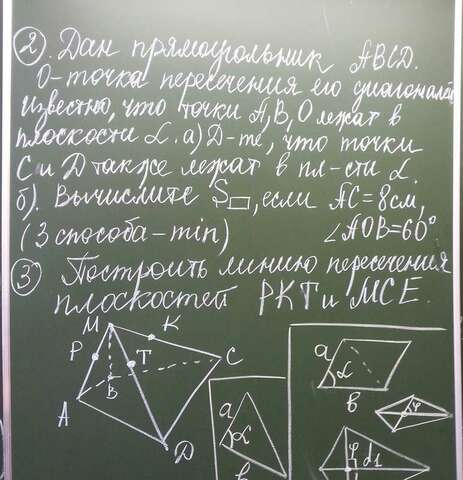 2. Дан прямоугольник ABCD.
O-точка пересечения его диагоналей
известно, что точки A, B, O лежат в
плоскости α. а) D-ть, что точки
C и D также лежат в пл-сти α.
б). Вычислите S▭, если AC=8см,
(3 способа-min) ∠AOB=60°
3 Построить линию пересечения
плоскостей PKT и MCE.
M K
P T C
B
A
D
a α
b
a α
b
φ
φ d1